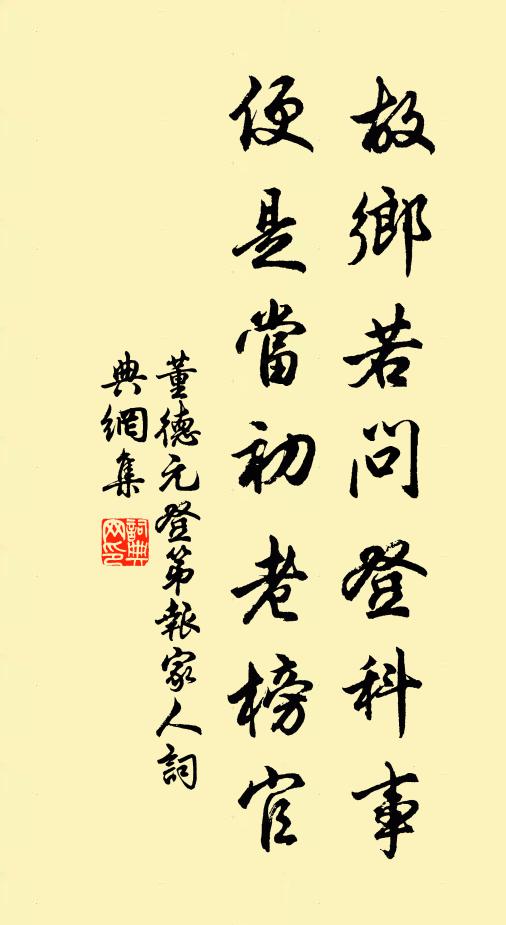 故鄉若問登科事
便是當初老榜官
董德元登第報家人詞
典網集
詞典網印